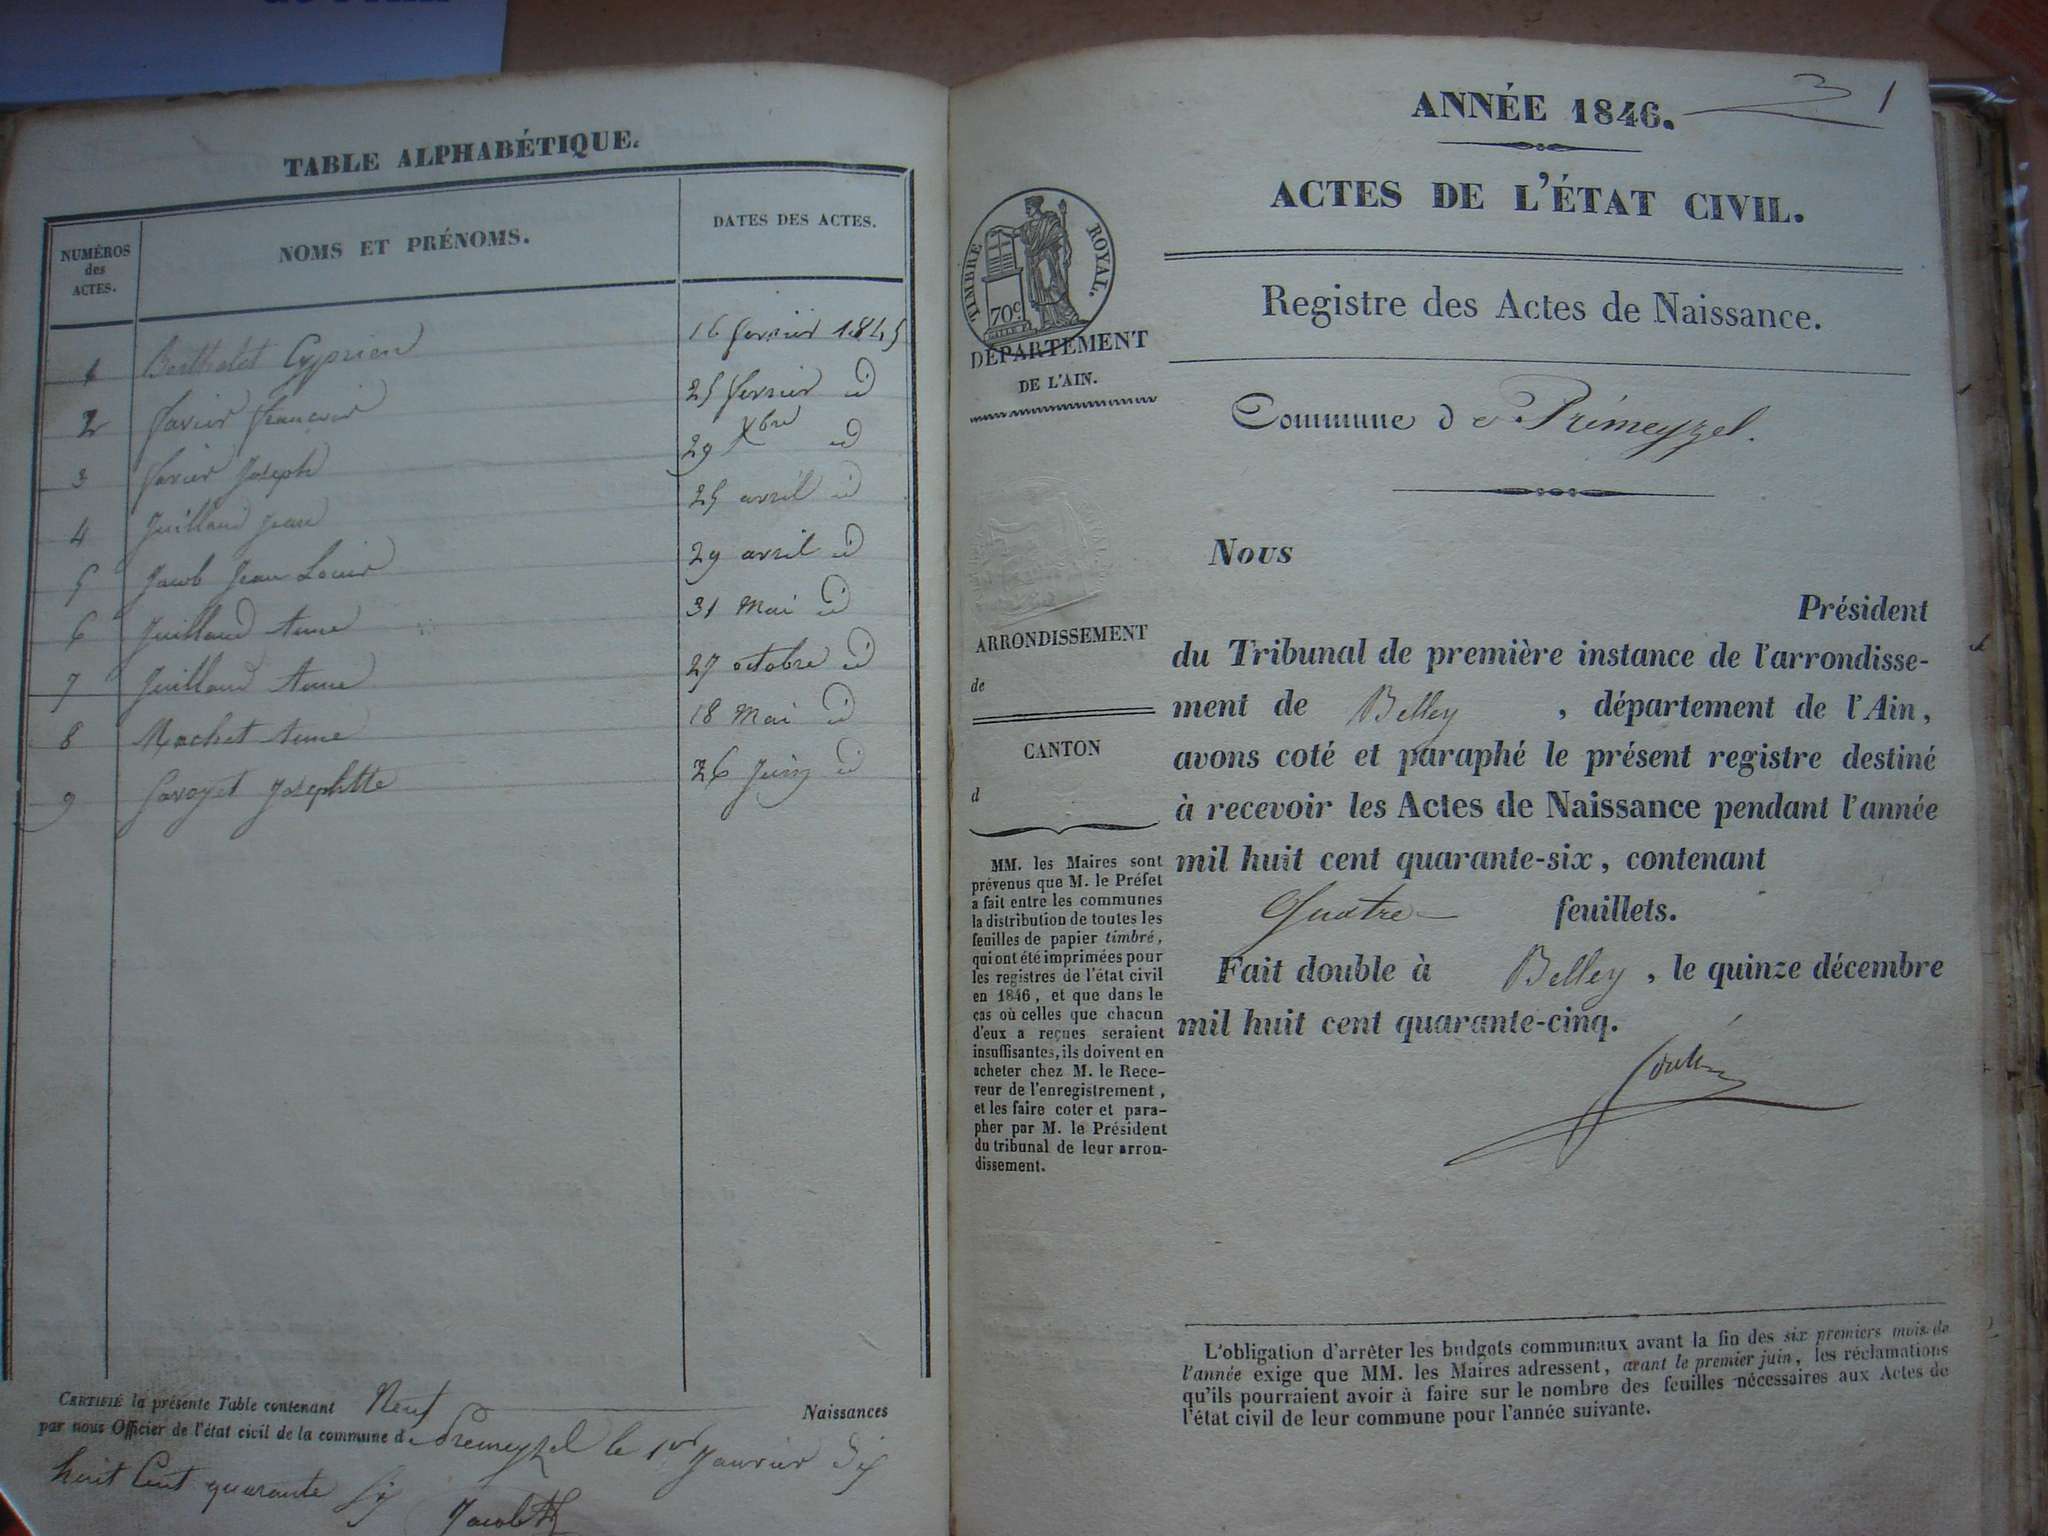 TABLE ALPHABÉTIQUE.
NUMÉROS
des
ACTES.
NOMS ET PRÉNOMS.
DATES DES ACTES.
1 Berthelet Cyprien 16 fevrier 1845
2 favier francois 25 fevrier id
3 favier Joseph 29 Xbre id
4 Guilland jean 25 avril id
5 Jacob Jean Louis 29 avril id
6 Guilland Anne 31 Mai id
7 Guilland Anne 27 octobre id
8 Machet Anne 18 Mai id
9 Savoyet Josephtte 26 Juin id
CERTIFIÉ la présente Table contenant Neuf Naissances
par nous Officier de l'état civil de la commune de Premeyzel le 1er Janvier dix
huit Cent quarante six
Jacob
3 1
ANNÉE 1846.
ACTES DE L'ÉTAT CIVIL.
Registre des Actes de Naissance.
TIMBRE ROYAL.
70c
DÉPARTEMENT
DE L'AIN.
Commune de Prémeyzel.
Nous
Président
du Tribunal de première instance de l'arrondisse-
ment de Belley , département de l'Ain,
avons coté et paraphé le présent registre destiné
à recevoir les Actes de Naissance pendant l'année
mil huit cent quarante-six, contenant
Quatre feuillets.
Fait double à Belley , le quinze décembre
mil huit cent quarante-cinq.
ARRONDISSEMENT
de
CANTON
d
MM. les Maires sont
prévenus que M. le Préfet
a fait entre les communes
la distribution de toutes les
feuilles de papier timbré,
qui ont été imprimées pour
les registres de l'état civil
en 1846, et que dans le
cas où celles que chacun
d'eux a reçues seraient
insuffisantes, ils doivent en
acheter chez M. le Rece-
veur de l'enregistrement,
et les faire coter et para-
pher par M. le Président
du tribunal de leur arron-
dissement.
L'obligation d'arrêter les budgets communaux avant la fin des six premiers mois de
l'année exige que MM. les Maires adressent, avant le premier juin, les réclamations
qu'ils pourraient avoir à faire sur le nombre des feuilles nécessaires aux Actes de
l'état civil de leur commune pour l'année suivante.